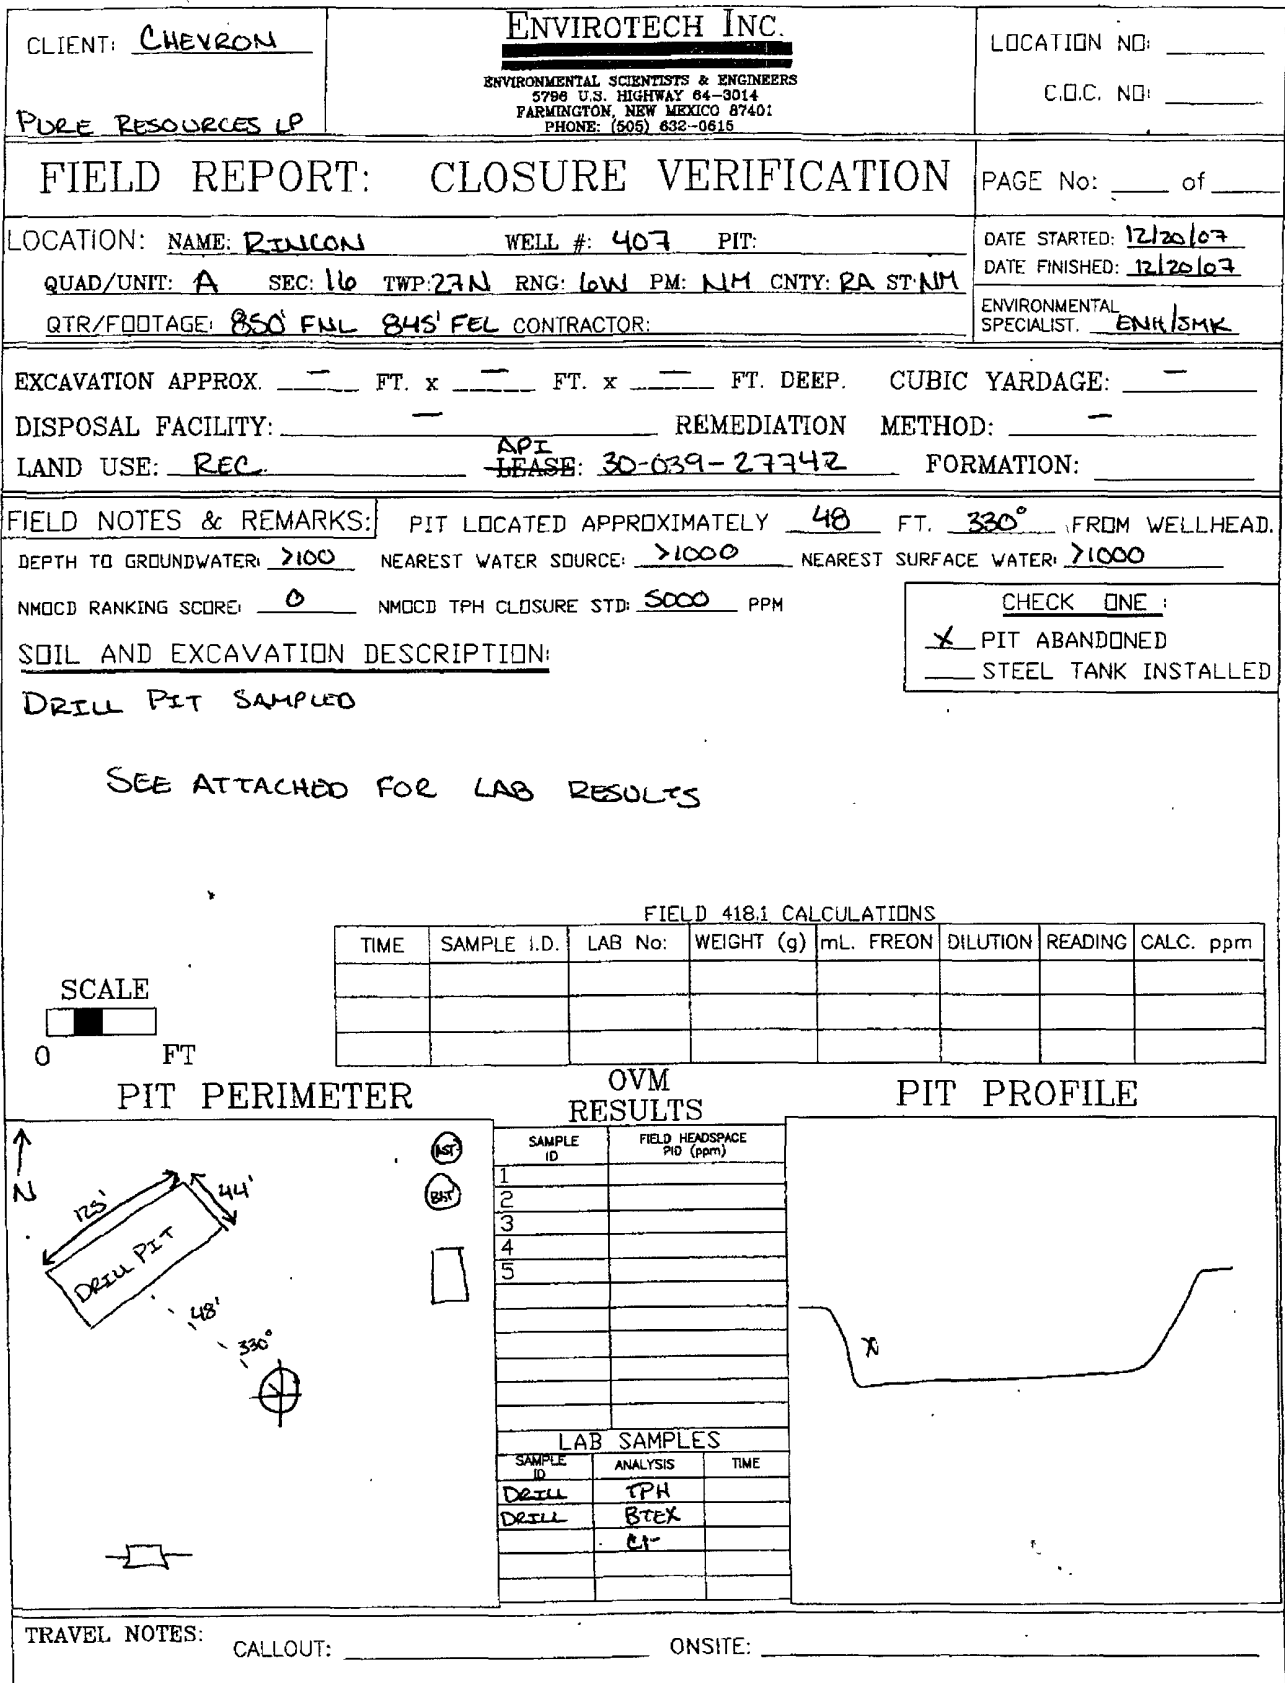 CLIENT: CHEVRON
PURE RESOURCES LP
ENVIROTECH INC.
ENVIRONMENTAL SCIENTISTS & ENGINEERS
5796 U.S. HIGHWAY 64-3014
FARMINGTON, NEW MEXICO 87401
PHONE: (505) 632-0615
LOCATION NO:
C.O.C. NO:
FIELD REPORT: CLOSURE VERIFICATION
PAGE No: ____ of ____
LOCATION: NAME: RINCON WELL #: 407 PIT:
QUAD/UNIT: A SEC: 16 TWP: 27N RNG: 6W PM: NM CNTY: RA ST: NM
QTR/FOOTAGE: 850' FNL 845' FEL CONTRACTOR:
DATE STARTED: 12/20/07
DATE FINISHED: 12/20/07
ENVIRONMENTAL
SPECIALIST. ENH/JMK
EXCAVATION APPROX. — FT. x — FT. x — FT. DEEP. CUBIC YARDAGE: —
DISPOSAL FACILITY: — REMEDIATION METHOD: —
API
LAND USE: REC. LEASE: 30-039-27742 FORMATION:
FIELD NOTES & REMARKS: PIT LOCATED APPROXIMATELY 48 FT. 330° FROM WELLHEAD.
DEPTH TO GROUNDWATER: >100 NEAREST WATER SOURCE: >1000 NEAREST SURFACE WATER: >1000
NMOCD RANKING SCORE: 0 NMOCD TPH CLOSURE STD: 5000 PPM
CHECK ONE :
X PIT ABANDONED
STEEL TANK INSTALLED
SOIL AND EXCAVATION DESCRIPTION:
DRILL PIT SAMPLED
SEE ATTACHED FOR LAB RESULTS
FIELD 418.1 CALCULATIONS
TIME SAMPLE I.D. LAB No: WEIGHT (g) mL. FREON DILUTION READING CALC. ppm
SCALE
0 FT
PIT PERIMETER
N
125'
44'
DRILL PIT
48'
330°
AST
BGT
OVM
RESULTS
SAMPLE ID FIELD HEADSPACE PID (ppm)
1
2
3
4
5
LAB SAMPLES
SAMPLE ID ANALYSIS TIME
DRILL TPH
DRILL BTEX
Cl-
PIT PROFILE
X
TRAVEL NOTES: CALLOUT: ONSITE: